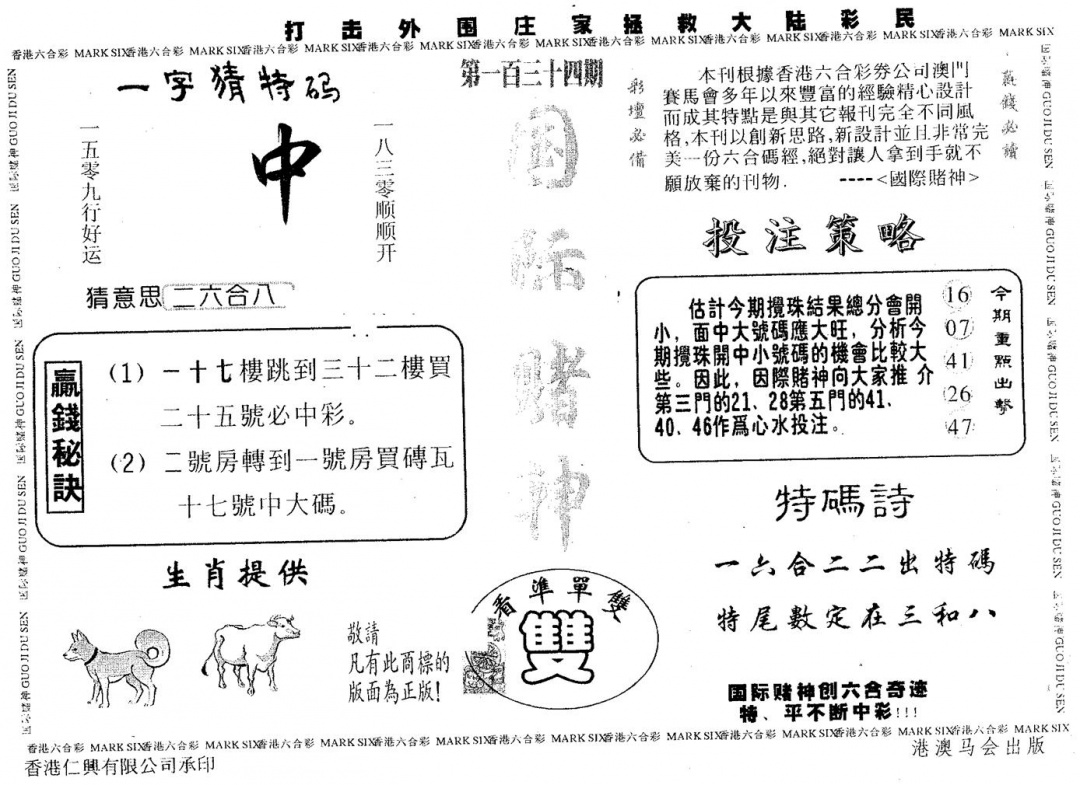 打击外围庄家拯救大陆彩民
香港六合彩 MARK SIX香港六合彩 MARK SIX香港六合彩 MARK SIX香港六合彩 MARK SIX香港六合彩 MARK SIX香港六合彩 MARK SIX香港六合彩 MARK SIX香港六合彩 MARK SIX香港六合彩 MARK SIX
一字猜特码
一五零九行好运
中
一八三零顺顺开
猜意思 二六合八
贏錢秘訣
(1) 一十七樓跳到三十二樓買
二十五號必中彩。
(2) 二號房轉到一號房買磚瓦
十七號中大碼。
生肖提供
敬請
凡有此商標的
版面為正版!
第一百三十四期
国际赌神
看準單雙
雙
彩壇必備
本刊根據香港六合彩券公司澳門
賽馬會多年以來豐富的經驗精心設計
而成其特點是與其它報刊完全不同風
格,本刊以創新思路,新設計並且非常完
美一份六合碼經,絕對讓人拿到手就不
願放棄的刊物. ----<國際賭神>
贏錢必讀
投注策略
估計今期攪珠結果總分會開
小，面中大號碼應大旺，分析今
期攪珠開中小號碼的機會比較大
些。因此，因際賭神向大家推 介
第三門的21、28第五門的41、
40、46作爲心水投注。
16
07
41
26
47
今期重點出擊
特碼詩
一六合二二出特碼
特尾數定在三和八
国际赌神创六合奇迹
特、平不断中彩!!!
香港六合彩 MARK SIX香港六合彩 MARK SIX香港六合彩 MARK SIX香港六合彩 MARK SIX香港六合彩 MARK SIX香港六合彩 MARK SIX香港六合彩 MARK SIX香港六合彩 MARK SIX香港六合彩 MARK SIX
香港仁興有限公司承印
港澳马会出版